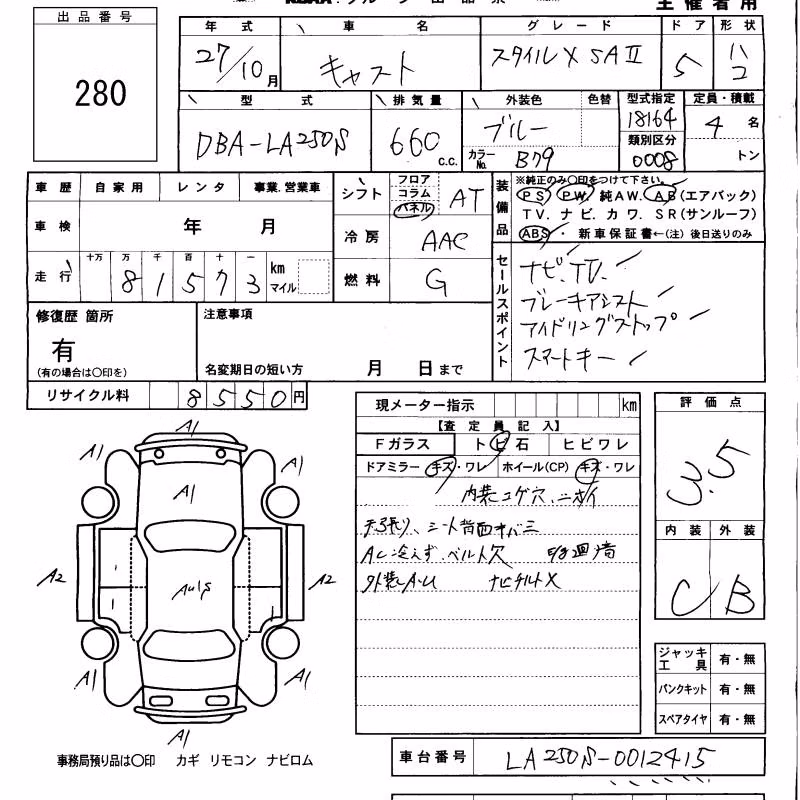 主催者用
出品番号
280
年式 車名 グレード ドア 形状
27/10月 キャスト スタイルX SAⅡ 5 ハコ
型式 排気量 外装色 色替 型式指定 定員・積載
DBA-LA250S 660 c.c. ブルー 18164 4名
カラーNo. B79 類別区分 0008 トン
車歴 自家用 レンタ 事業.営業車
車検 年 月
走行 十万 万 千 百 十 一
81573 km マイル
シフト フロア コラム パネル AT
冷房 AAC
燃料 G
装備品
※純正のみ〇印をつけて下さい。
PS PW 純AW. AB(エアバック)
TV. ナビ. カワ. SR(サンルーフ)
ABS・新車保証書←(注)後日送りのみ
セールスポイント
ナビ.TV.
ブレーキアシスト
アイドリングストップ
スマートキー
修復歴 箇所
有
(有の場合は〇印を)
注意事項
名変期日の短い方 月 日まで
リサイクル料 8550円
現メーター指示 km
【査定員記入】
Fガラス トビ石 ヒビワレ
ドアミラー キズ・ワレ ホイール(CP) キズ・ワレ
内装コゲ穴、ニオイ
天張り、シート背面キバミ
AC冷えず、ベルト欠
外装A.U ナビチルトX
評価点
3.5
内装 外装
C B
ジャッキ工具 有・無
パンクキット 有・無
スペアタイヤ 有・無
A1
A1 A1
A1
A2 A2
A1 A1
A1
事務局預り品は〇印 カギ リモコン ナビロム
車台番号 LA250S-0012415